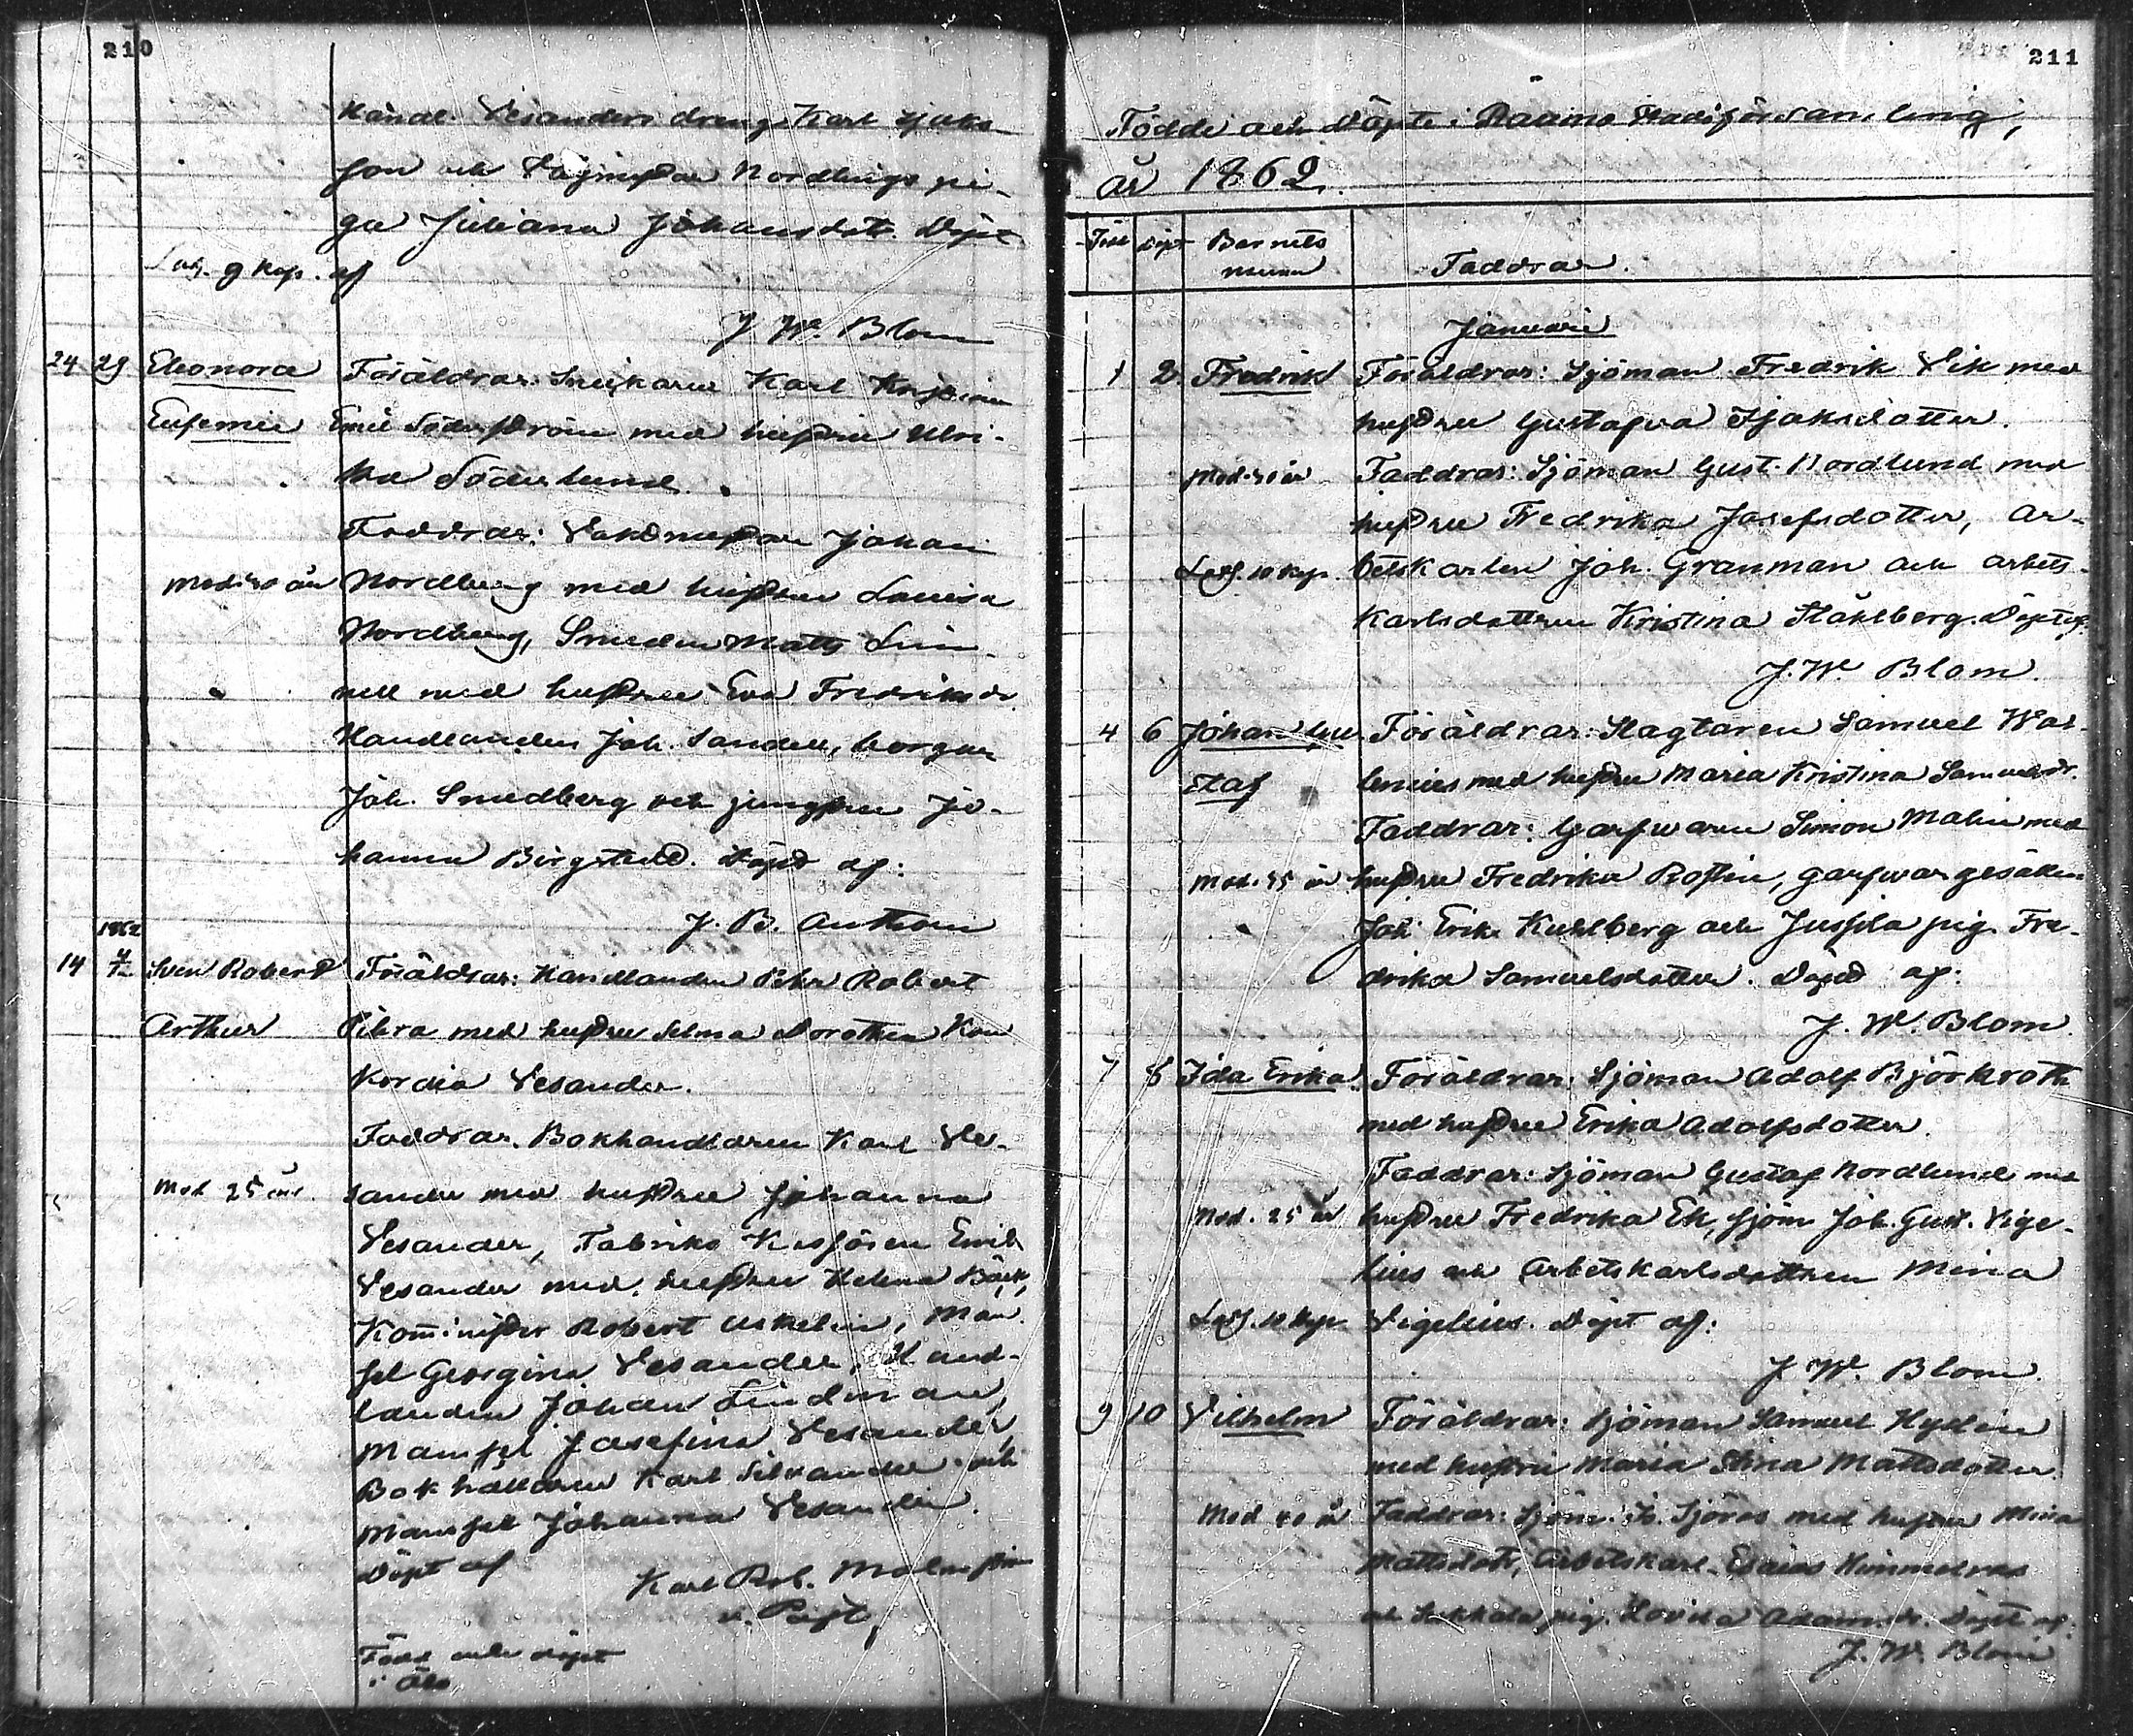 210
Handl. Vesanders dreng Karl Isaks-
son och Nordlings pi-
ga Juliana Johansdott. Döpt
af
J. W. Blom
24 29 Eleonora Föräldrar: Snickaren Karl
Eufemie Emil Söderström med hustru Ulri-
ka Söderlund.
Faddrar: Vaktmästare Johan
Mod. 40 år Nordberg med hustru Lovisa
Nordberg, Smeden Matts Lin-
nell med hustru Eva Fredriksdr.
Handlanden Joh. Sandell, borgar
Joh. Smedberg och jungfru Jo-
hanna Bergstedt. Döpt af:
J. B. Anthoni
1862
14 Sven Robert Föräldrar: Handlanden Pehr Robert
Arthur med hustru Selma Dorothea Kon
kordia Vesander.
Faddrar. Bokhandlaren Karl Ve-
Mod 25 år. sander med hustru Johanna
Vesander, Fabriks Emil
Vesander med hustru Helena Bäck,
Kom̄inister Robert Mam-
sel Georgina Vesander, Hand-
landen Johan Lindman,
Mamsel Josefina Vesander,
Bokhållaren Karl Silvander och
Mamsel Johanna Vesander.
Döpt af
Karl Rob. Malmström
v. Past.
Född och döpt
i Åbo
211
Födde och Döpte i Raumo Stadsförsamling,
år 1862.
Född Döpt Barnets
namn Faddrar.
Januarii
1 2 Fredrik Föräldrar: Sjöman Fredrik Vik med
hustru Gustafva Isaksdotter.
Mod. 30 år Faddrar: Sjöman Gust. Nordlund med
hustru Fredrika Josefsdotter, ar-
Lösf. 10 kop. betskarlen Joh. Granman och arbets-
karlsdottren Kristina Ståhlberg. Döpt af
J. W. Blom.
4 6 Johan Gu- Föräldrar: Slagtaren Samuel Wal-
staf lenius med hustru Maria Kristina Samuelsdr.
Faddrar: Garfvaren Simon Malin med
Mod. 35 år hustru Fredrika Rostin, garfvaregesällen
Joh. Erik Kuhlberg och Jussila pig. Fre-
drika Samuelsdotter. Döpt af:
J. W. Blom.
7 8 Ida Erika. Föräldrar: Sjöman Adolf Björkroth
med hustru Erika Adolfsdotter.
Faddrar: Sjöman Gustaf Nordlund med
Mod. 25 år hustru Fredrika Ek, sjöm Joh. Gust. Vige-
lius och Arbetskarlsdottren Mina
Lösf. 10 kop. Vigelius. Döpt af:
J. W. Blom.
9 10 Vilhelm Föräldrar: Sjöman Samuel Hydén
med hustru Maria Stina Mattsdotter.
Mod 40 år Faddrar: Sjöm. Is. Sjöros med hustru Mina
Mattsdotr, Arbetskarl. Esaias Himmelroos
och pig. Lovisa Adamsdr. Döpt af.
J. W. Blom